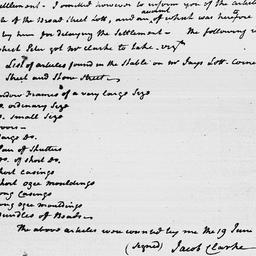 Settlement. - I omitted however to inform you of the articles
of the Broad Street Lott, and an account of which was therefore
by him for Delaying the Settlement - The following is
which Peter got Mr Clarke to take. vizt
List of articles found in the Stable on Mr Jays Lott. Corner
Street and Stone Street -
Window Frames of a very large Size
Do. ordinary Size
Do. small Size
Doors -
large Do.
Pair of Shutters
Do. of short Do.
Short casings
Short ogee mouldings
Long Casings
Long ogee mouldings
Bundles of Beads -
The above articles were counted by me the 19 June
(signed) Jacob Clarke